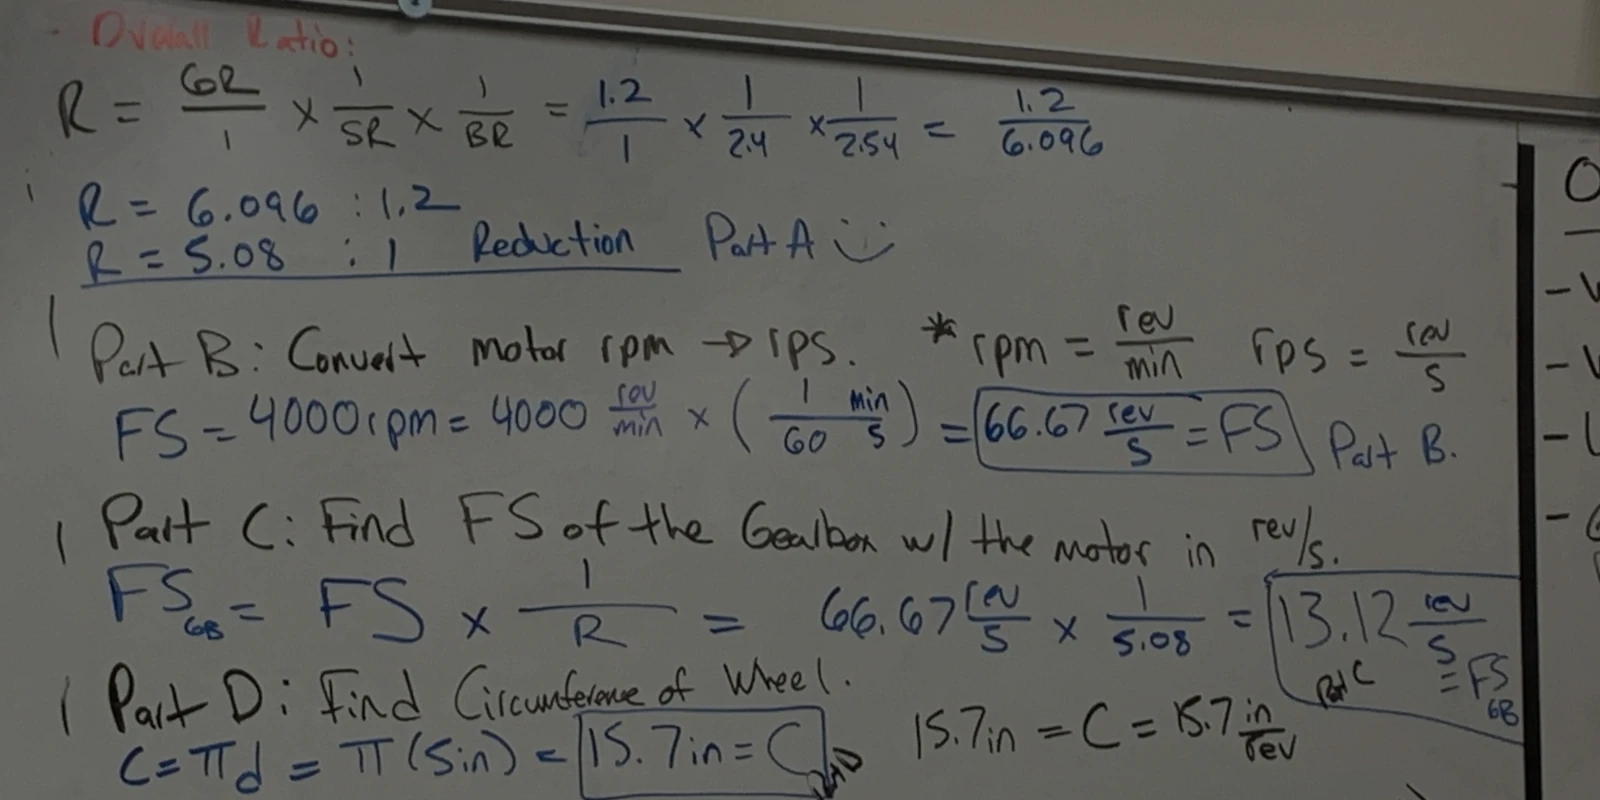 - Overall Ratio:
R = GR/1 × 1/SR × 1/BR = 1.2/1 × 1/2.4 × 1/2.54 = 1.2/6.096
R = 6.096 : 1.2
R = 5.08 : 1 Reduction Part A
Part B: Convert motor rpm → rps. * rpm = rev/min rps = rev/s
FS = 4000rpm = 4000 rev/min × (1 min/60 s) = 66.67 rev/s = FS Part B.
Part C: Find FS of the Gearbox w/ the motor in rev/s.
FS GB = FS × 1/R = 66.67 rev/s × 1/5.08 = 13.12 rev/s = FS GB Part C
Part D: Find Circumference of Wheel.
C = πd = π(5in) = 15.7in = C 15.7in = C = 15.7 in/rev